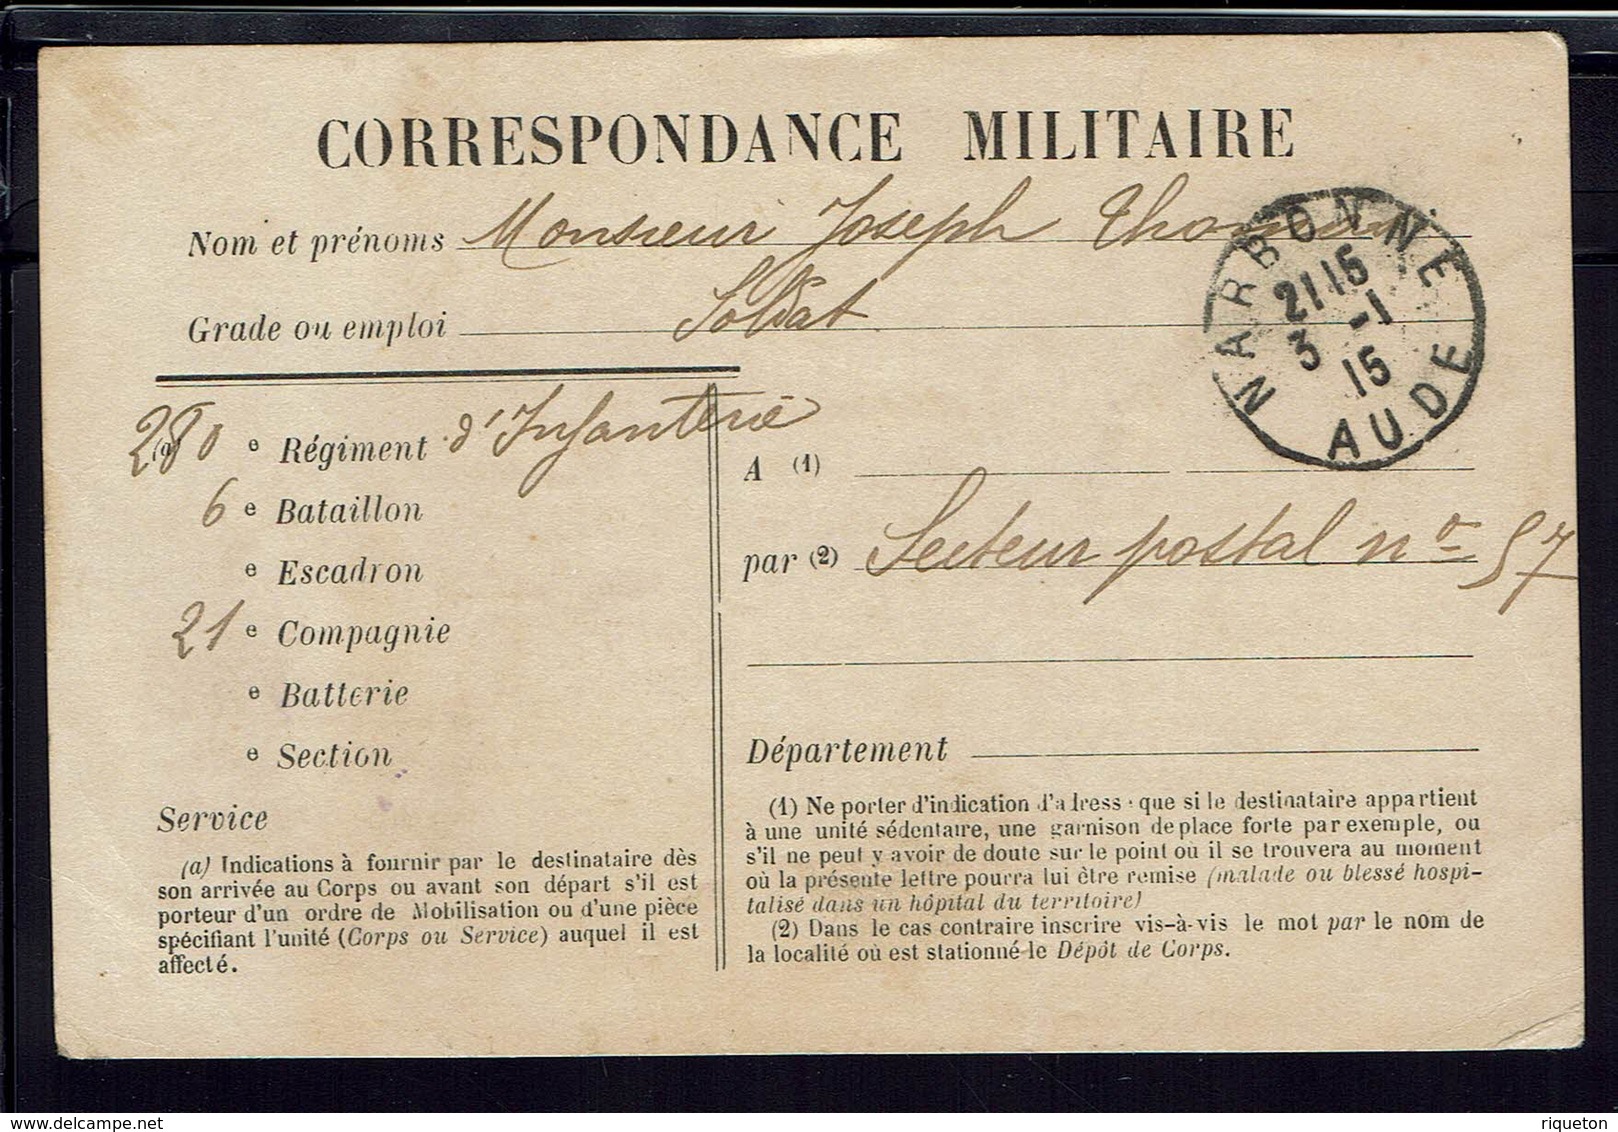 CORRESPONDANCE MILITAIRE
Nom et prénoms Monsieur Joseph
Grade ou emploi Soldat
NARBONNE
21 15
3 -1
15
AUDE
(a) 280 e Régiment d'Infanterie
6 e Bataillon
e Escadron
21 e Compagnie
e Batterie
e Section
Service
(a) Indications à fournir par le destinataire dès
son arrivée au Corps ou avant son départ s'il est
porteur d'un ordre de Mobilisation ou d'une pièce
spécifiant l'unité (Corps ou Service) auquel il est
affecté.
A (1)
par (2) Secteur postal n° 57
Département
(1) Ne porter d'indication d'adresse que si le destinataire appartient
à une unité sédentaire, une garnison de place forte par exemple, ou
s'il ne peut y avoir de doute sur le point où il se trouvera au moment
où la présente lettre pourra lui être remise (malade ou blessé hospi-
talisé dans un hôpital du territoire)
(2) Dans le cas contraire inscrire vis-à-vis le mot par le nom de
la localité où est stationné le Dépôt de Corps.
riqueton